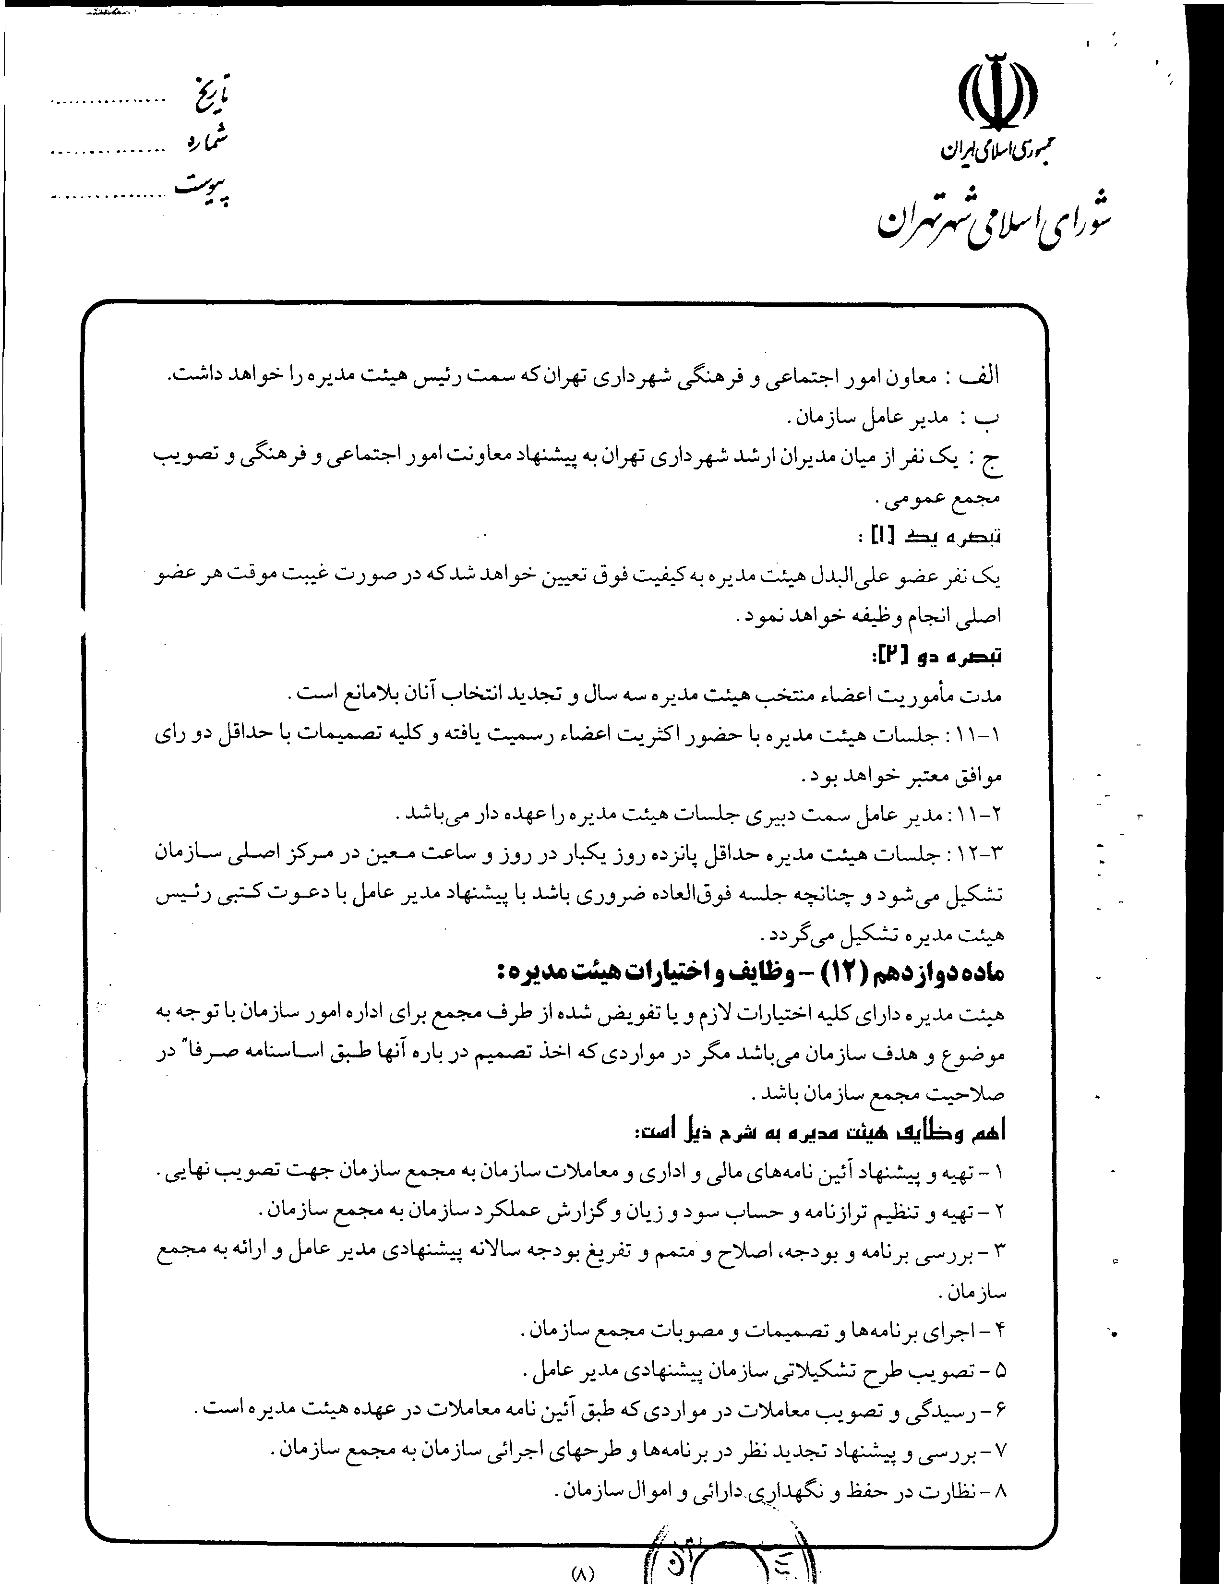 جمهوری اسلامی ایران
شورای اسلامی شهر تهران
تاریخ ................
شماره ................
پیوست ................
الف : معاون امور اجتماعی و فرهنگی شهرداری تهران که سمت رئیس هیئت مدیره را خواهد داشت.
ب : مدیر عامل سازمان .
ج : یک نفر از میان مدیران ارشد شهرداری تهران به پیشنهاد معاونت امور اجتماعی و فرهنگی و تصویب
مجمع عمومی .
تبصره یک [۱] :
یک نفر عضو علی‌البدل هیئت مدیره به کیفیت فوق تعیین خواهد شد که در صورت غیبت موقت هر عضو
اصلی انجام وظیفه خواهد نمود .
تبصره دو [۲]:
مدت مأموریت اعضاء منتخب هیئت مدیره سه سال و تجدید انتخاب آنان بلامانع است .
۱-۱۱ : جلسات هیئت مدیره با حضور اکثریت اعضاء رسمیت یافته و کلیه تصمیمات با حداقل دو رای
موافق معتبر خواهد بود .
۲-۱۱ : مدیر عامل سمت دبیری جلسات هیئت مدیره را عهده دار می‌باشد .
۳-۱۲ : جلسات هیئت مدیره حداقل پانزده روز یکبار در روز و ساعت معین در مرکز اصلی سازمان
تشکیل می‌شود و چنانچه جلسه فوق‌العاده ضروری باشد با پیشنهاد مدیر عامل با دعوت کتبی رئیس
هیئت مدیره تشکیل می‌گردد .
ماده دوازدهم (۱۲) - وظایف و اختیارات هیئت مدیره :
هیئت مدیره دارای کلیه اختیارات لازم و یا تفویض شده از طرف مجمع برای اداره امور سازمان با توجه به
موضوع و هدف سازمان می‌باشد مگر در مواردی که اخذ تصمیم در باره آنها طبق اساسنامه صرفا" در
صلاحیت مجمع سازمان باشد .
اهم وظایف هیئت مدیره به شرح ذیل است:
۱ - تهیه و پیشنهاد آئین نامه‌های مالی و اداری و معاملات سازمان به مجمع سازمان جهت تصویب نهایی .
۲ - تهیه و تنظیم ترازنامه و حساب سود و زیان و گزارش عملکرد سازمان به مجمع سازمان .
۳ - بررسی برنامه و بودجه، اصلاح و متمم و تفریغ بودجه سالانه پیشنهادی مدیر عامل و ارائه به مجمع
سازمان .
۴ - اجرای برنامه‌ها و تصمیمات و مصوبات مجمع سازمان .
۵ - تصویب طرح تشکیلاتی سازمان پیشنهادی مدیر عامل .
۶ - رسیدگی و تصویب معاملات در مواردی که طبق آئین نامه معاملات در عهده هیئت مدیره است .
۷ - بررسی و پیشنهاد تجدید نظر در برنامه‌ها و طرحهای اجرائی سازمان به مجمع سازمان .
۸ - نظارت در حفظ و نگهداری دارائی و اموال سازمان .
(۸)